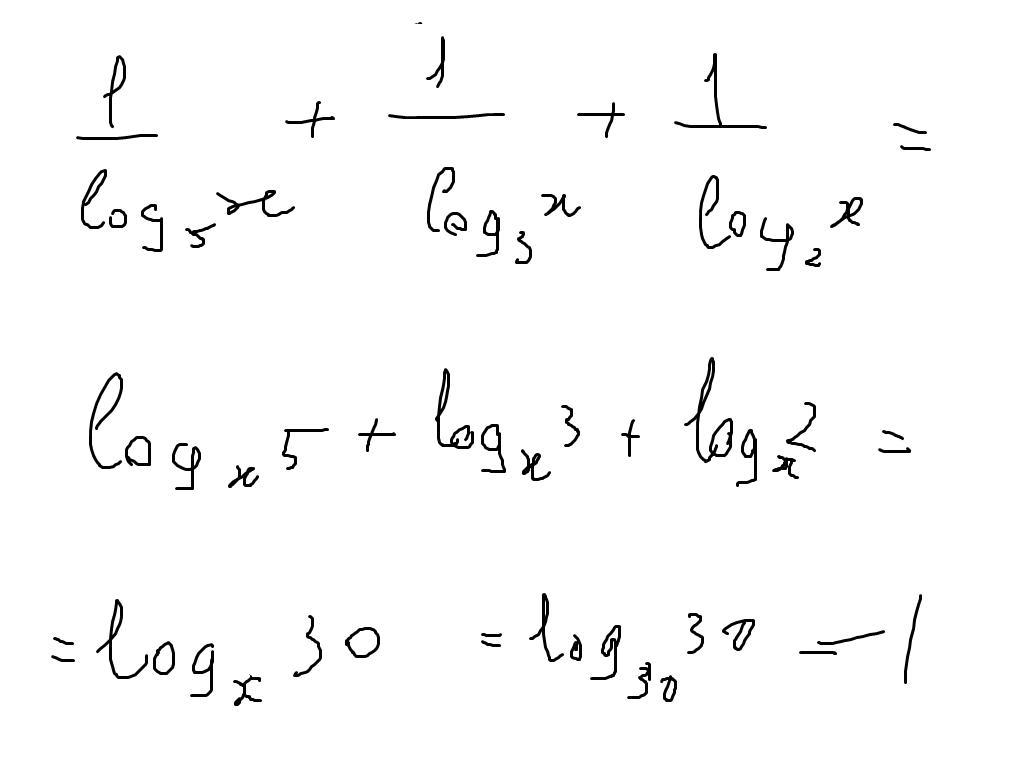 1/log₅x + 1/log₃x + 1/log₂x =
logₓ5 + logₓ3 + logₓ2 =
= logₓ30 = log₃₀30 = 1